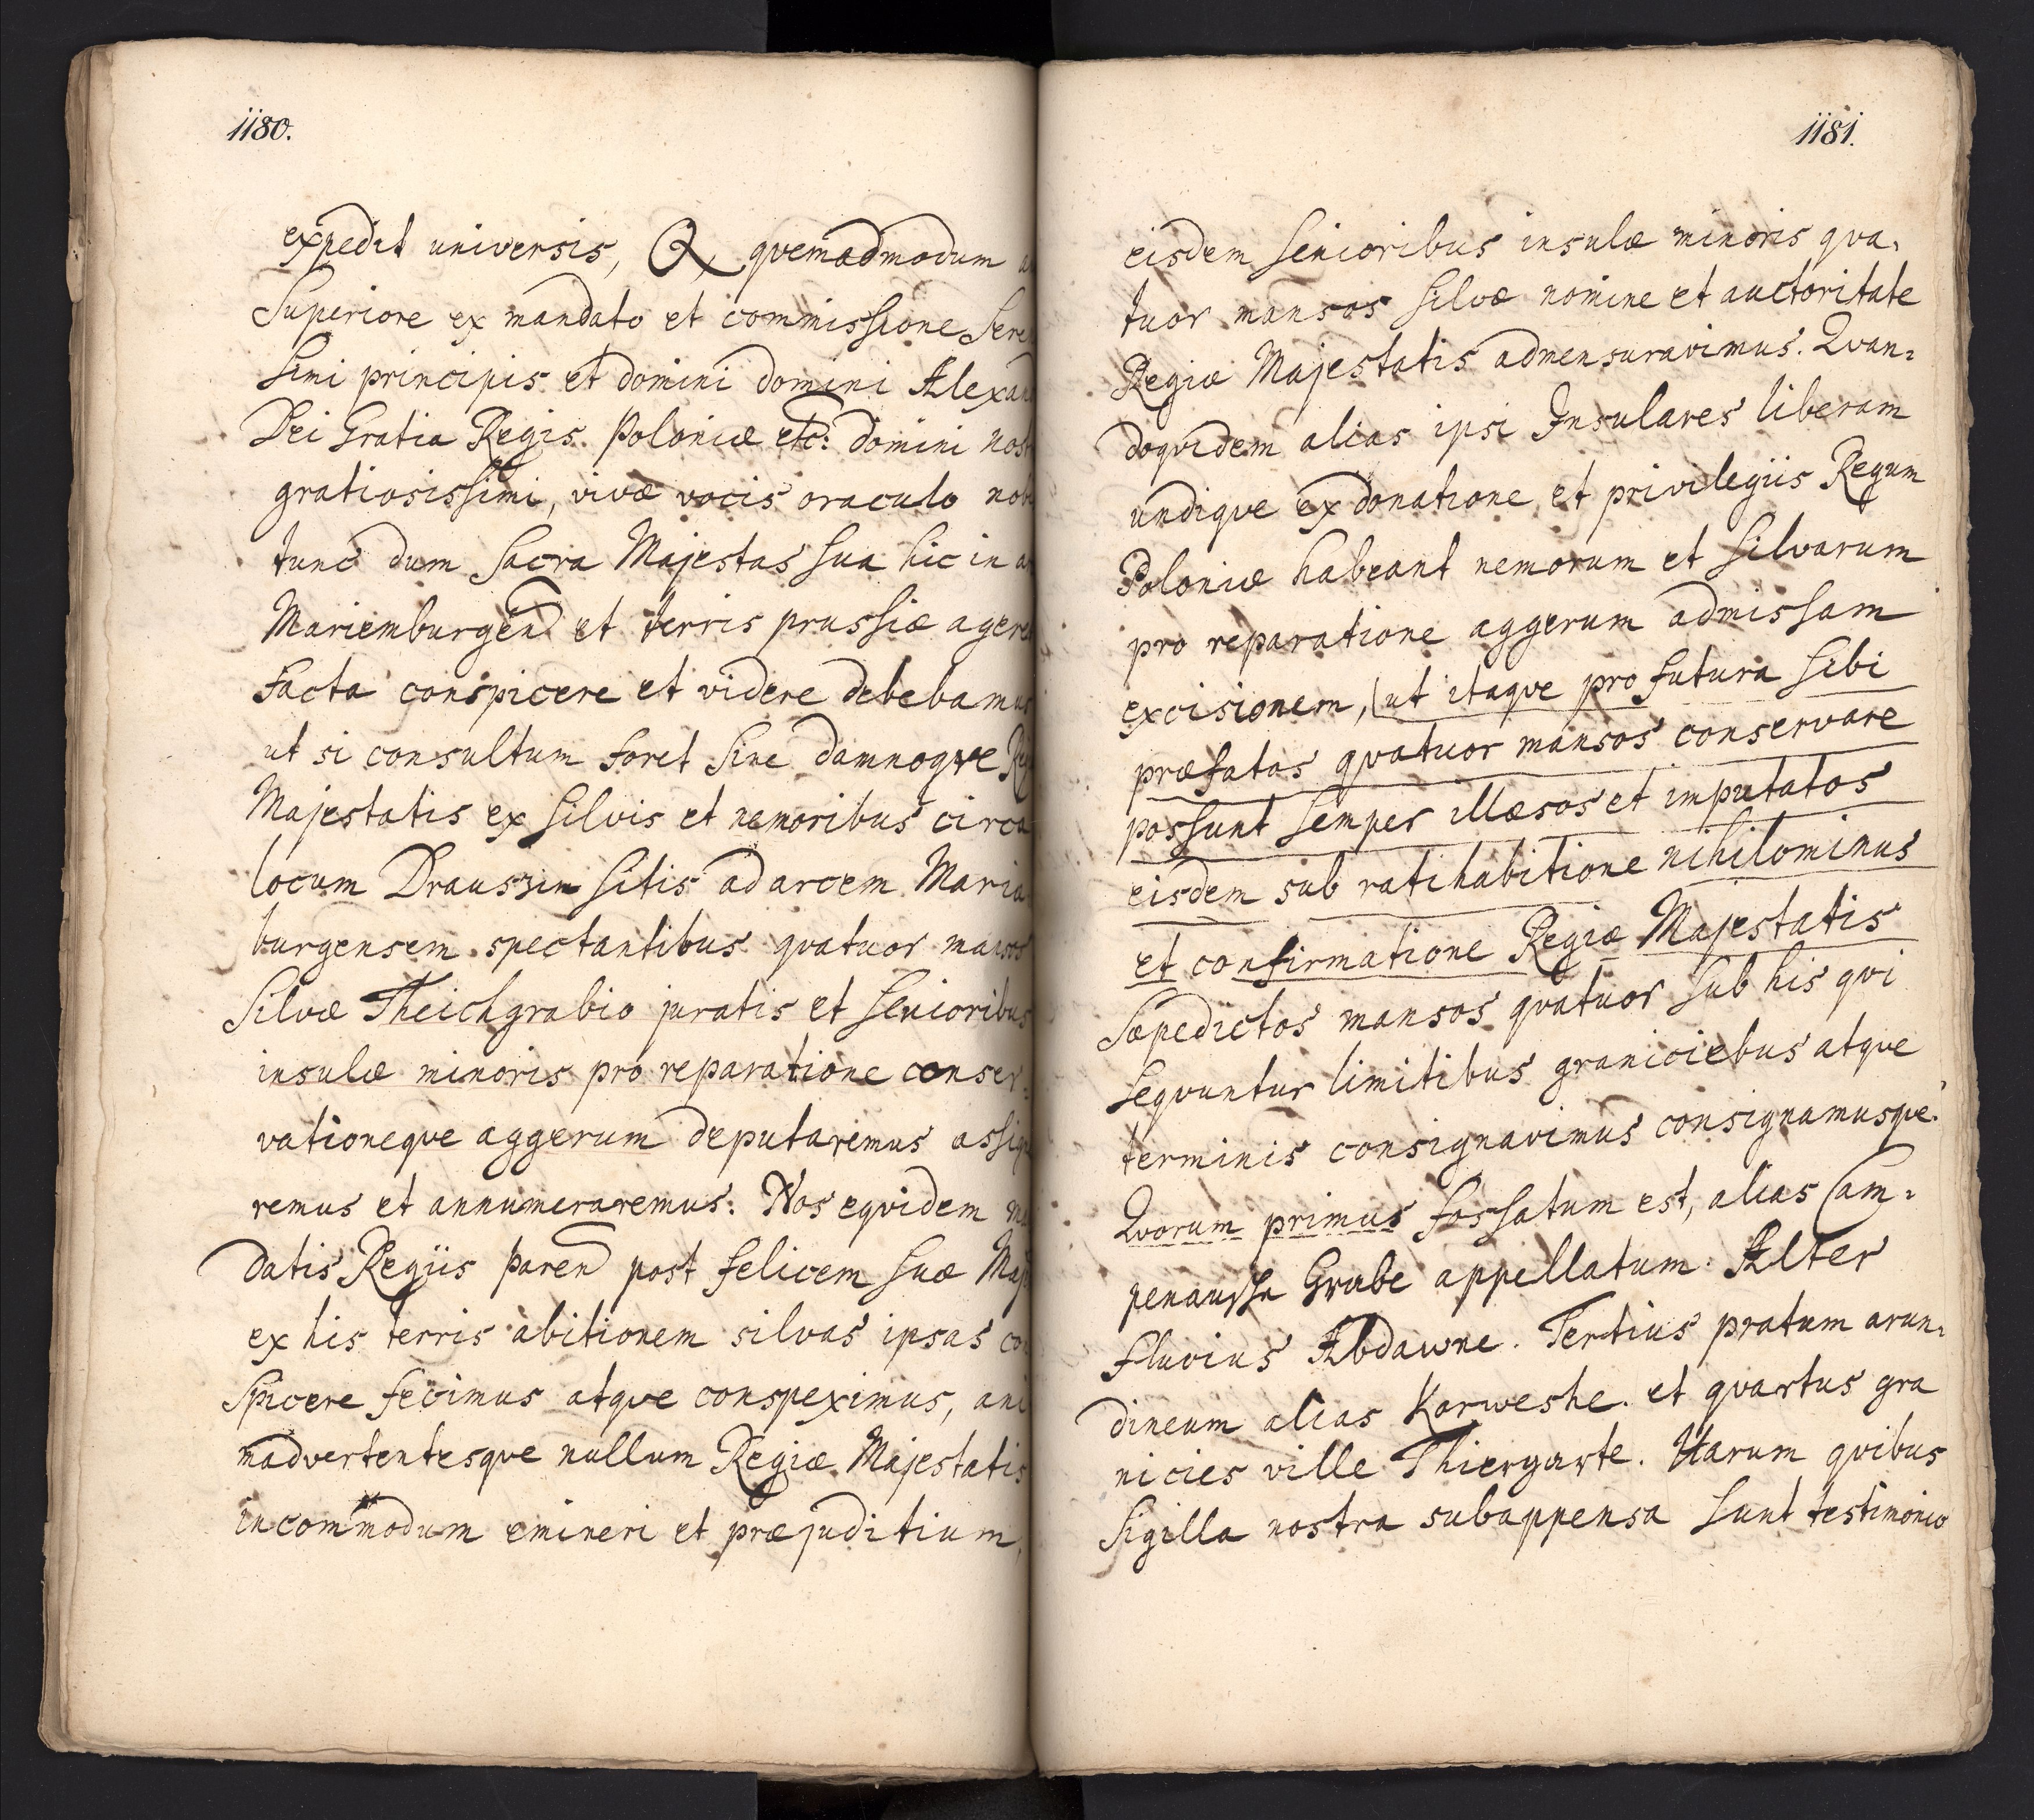 1180.
expedit universis, Q quemadmodum
Superiore ex mandato et commissione Sere
Simi principis et domini domini Alexan
Dei Gratia Regis Poloniæ etc: domini nost
gratiosissimi, vivæ vocis oraculo nob
tunc dum Sacra Majestas Sua hic in a
Mariemburgen et terris prussiæ agere
facta conspicere et videre debebamus
ut si consultum foret Sine damnoqve Re
Majestatis ex Silvis et nemoribus circa
locum Draussin Sitis ad arcem Maria
burgensem spectantibus qvatuor mansos
Silvæ Theichgrabio juratis et Senioribus
insulæ minoris pro reparatione conser-
vationeqve aggerum deputaremus assig
remus et annumeraremus: Nos eqvidem ma
datis Regiis paren post felicem Suæ Maj
ex his terris abitionem silvas ipsas con
Spicere fecimus atqve conspeximus, ani
madvertentesqve nullum Regiæ Majestatis
incommodum emineri et præjuditium,
1181.
eisdem Senioribus insulæ minoris qva-
tuor mansos Silvæ nomine et auctoritate
Regiæ Majestatis admensuravimus. Qvan-
doqvidem alias ipsi Insulares liberam
undiqve ex donatione et privilegiis Regum
Poloniæ habeant nemorum et Silvarum
pro reparatione aggerum admissam
excisionem, ut itaqve pro futura Sibi
præfatos qvatuor mansos conservare
possunt Semper illæsos et imputatos
eisdem sub ratihabitione nihilominus
et confirmatione Regiæ Majestatis
Sæpedictos mansos qvatuor Sub his qvi
Seqvuntur limitibus graniciebus atqve
terminis consignavimus consignamusqve.
Qvorum primus fossatum est, alias Cam-
penausche Grabe appellatum. Alter
fluvius Abdawne. Tertius pratum arun-
dineum alias Karweshe. et qvartus gra
nicies ville Thiergarte. Harum qvibus
Sigilla nostra subappensa Sunt testimonio